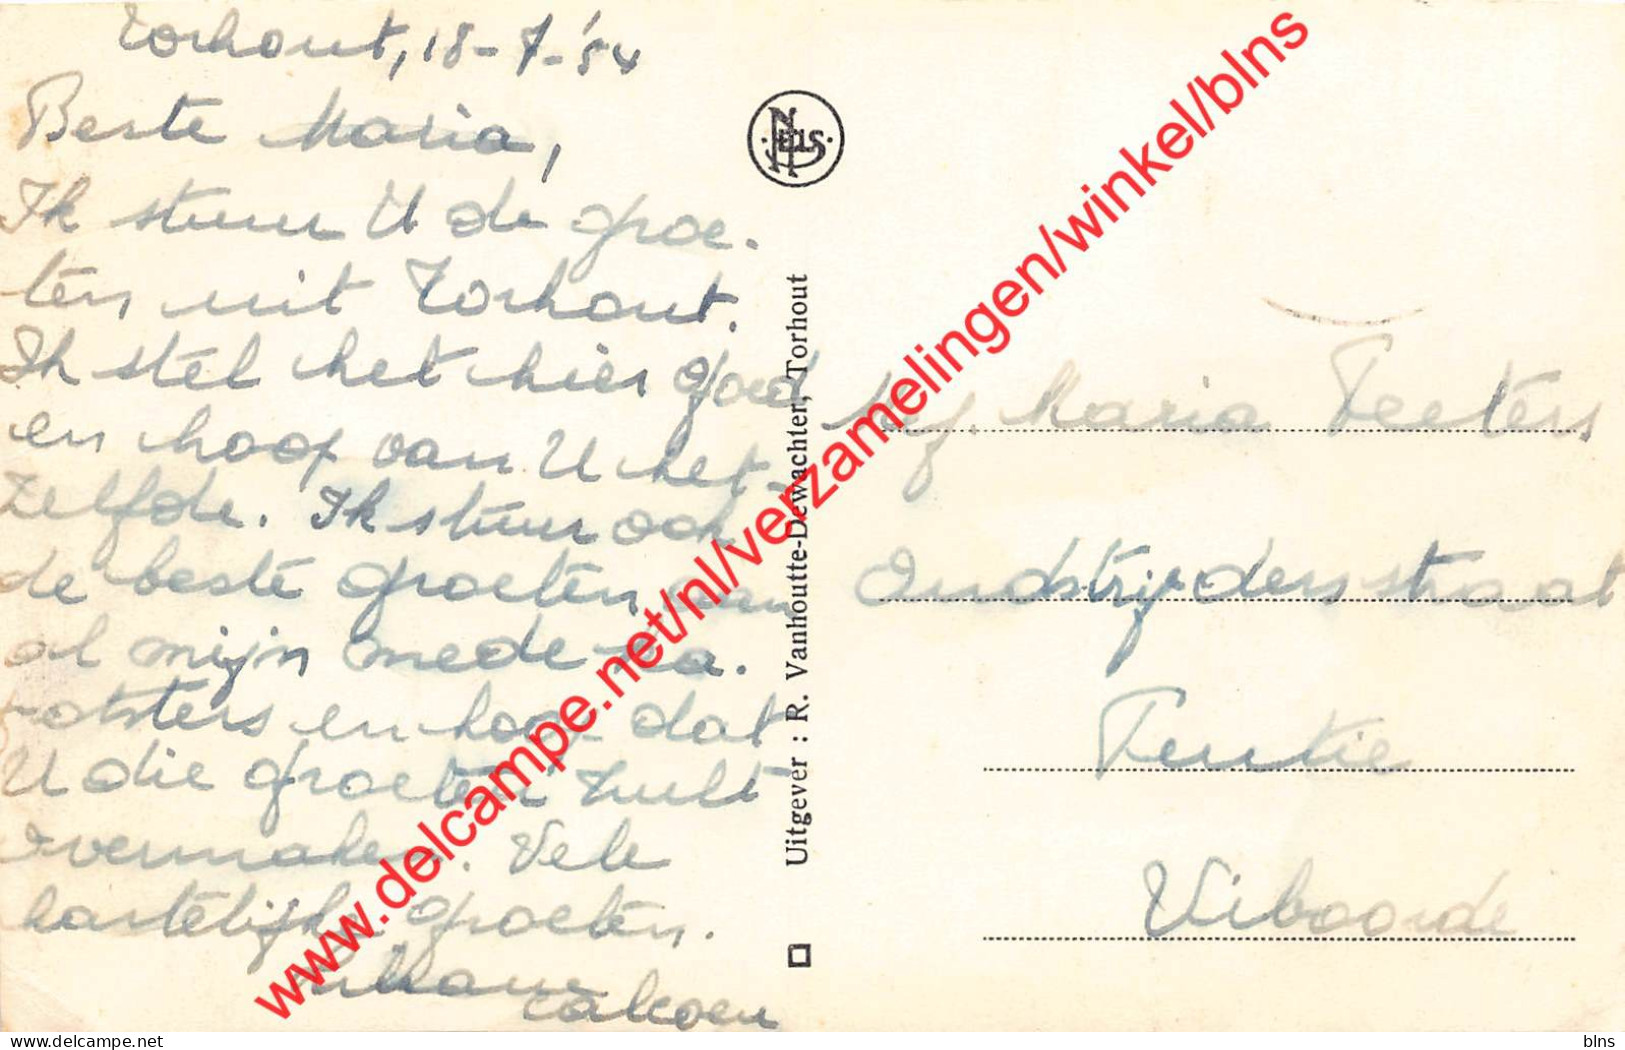 Torhout, 18-7-'54
Beste Maria,
Ik stuur U de groe-
ten uit Torhout.
Ik stel het hier goed
en hoop van U het-
zelfde. Ik stuur ook
de beste groeten aan
al mijn mede-la-
en hoop dat
U die groeten zult
overmaken. Vele
hartelijke groeten.
Calcoen
NELS
Uitgever : R. Vanhoutte-Dewachter, Torhout
Mej. Maria Peeters
Oudstrijdersstraat
Vilvoorde
www.delcampe.net/nl/verzamelingen/winkel/blns
delcampe.net
blns